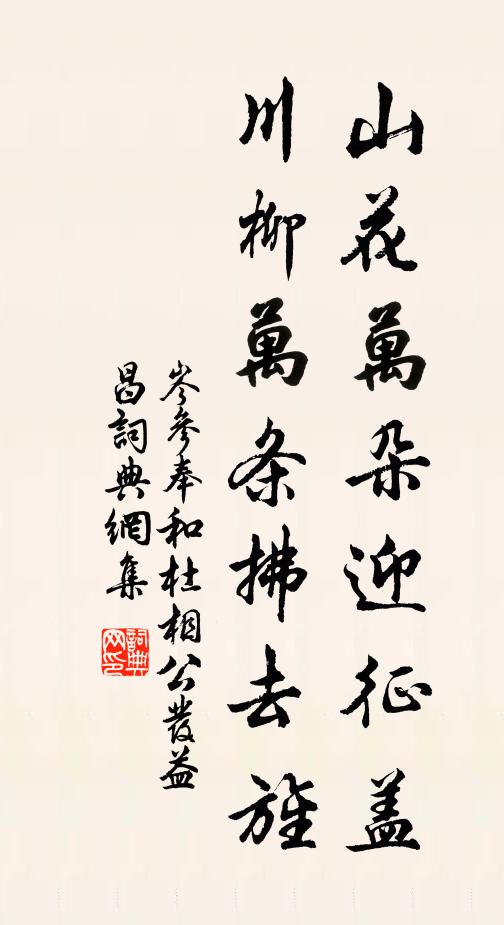 山花萬朵迎征盖
川柳萬条拂去旌
岑參奉和杜相公發益
昌詞典網集
詞典網印